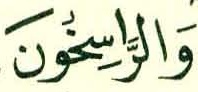 وَالرَّاسِخُونَ